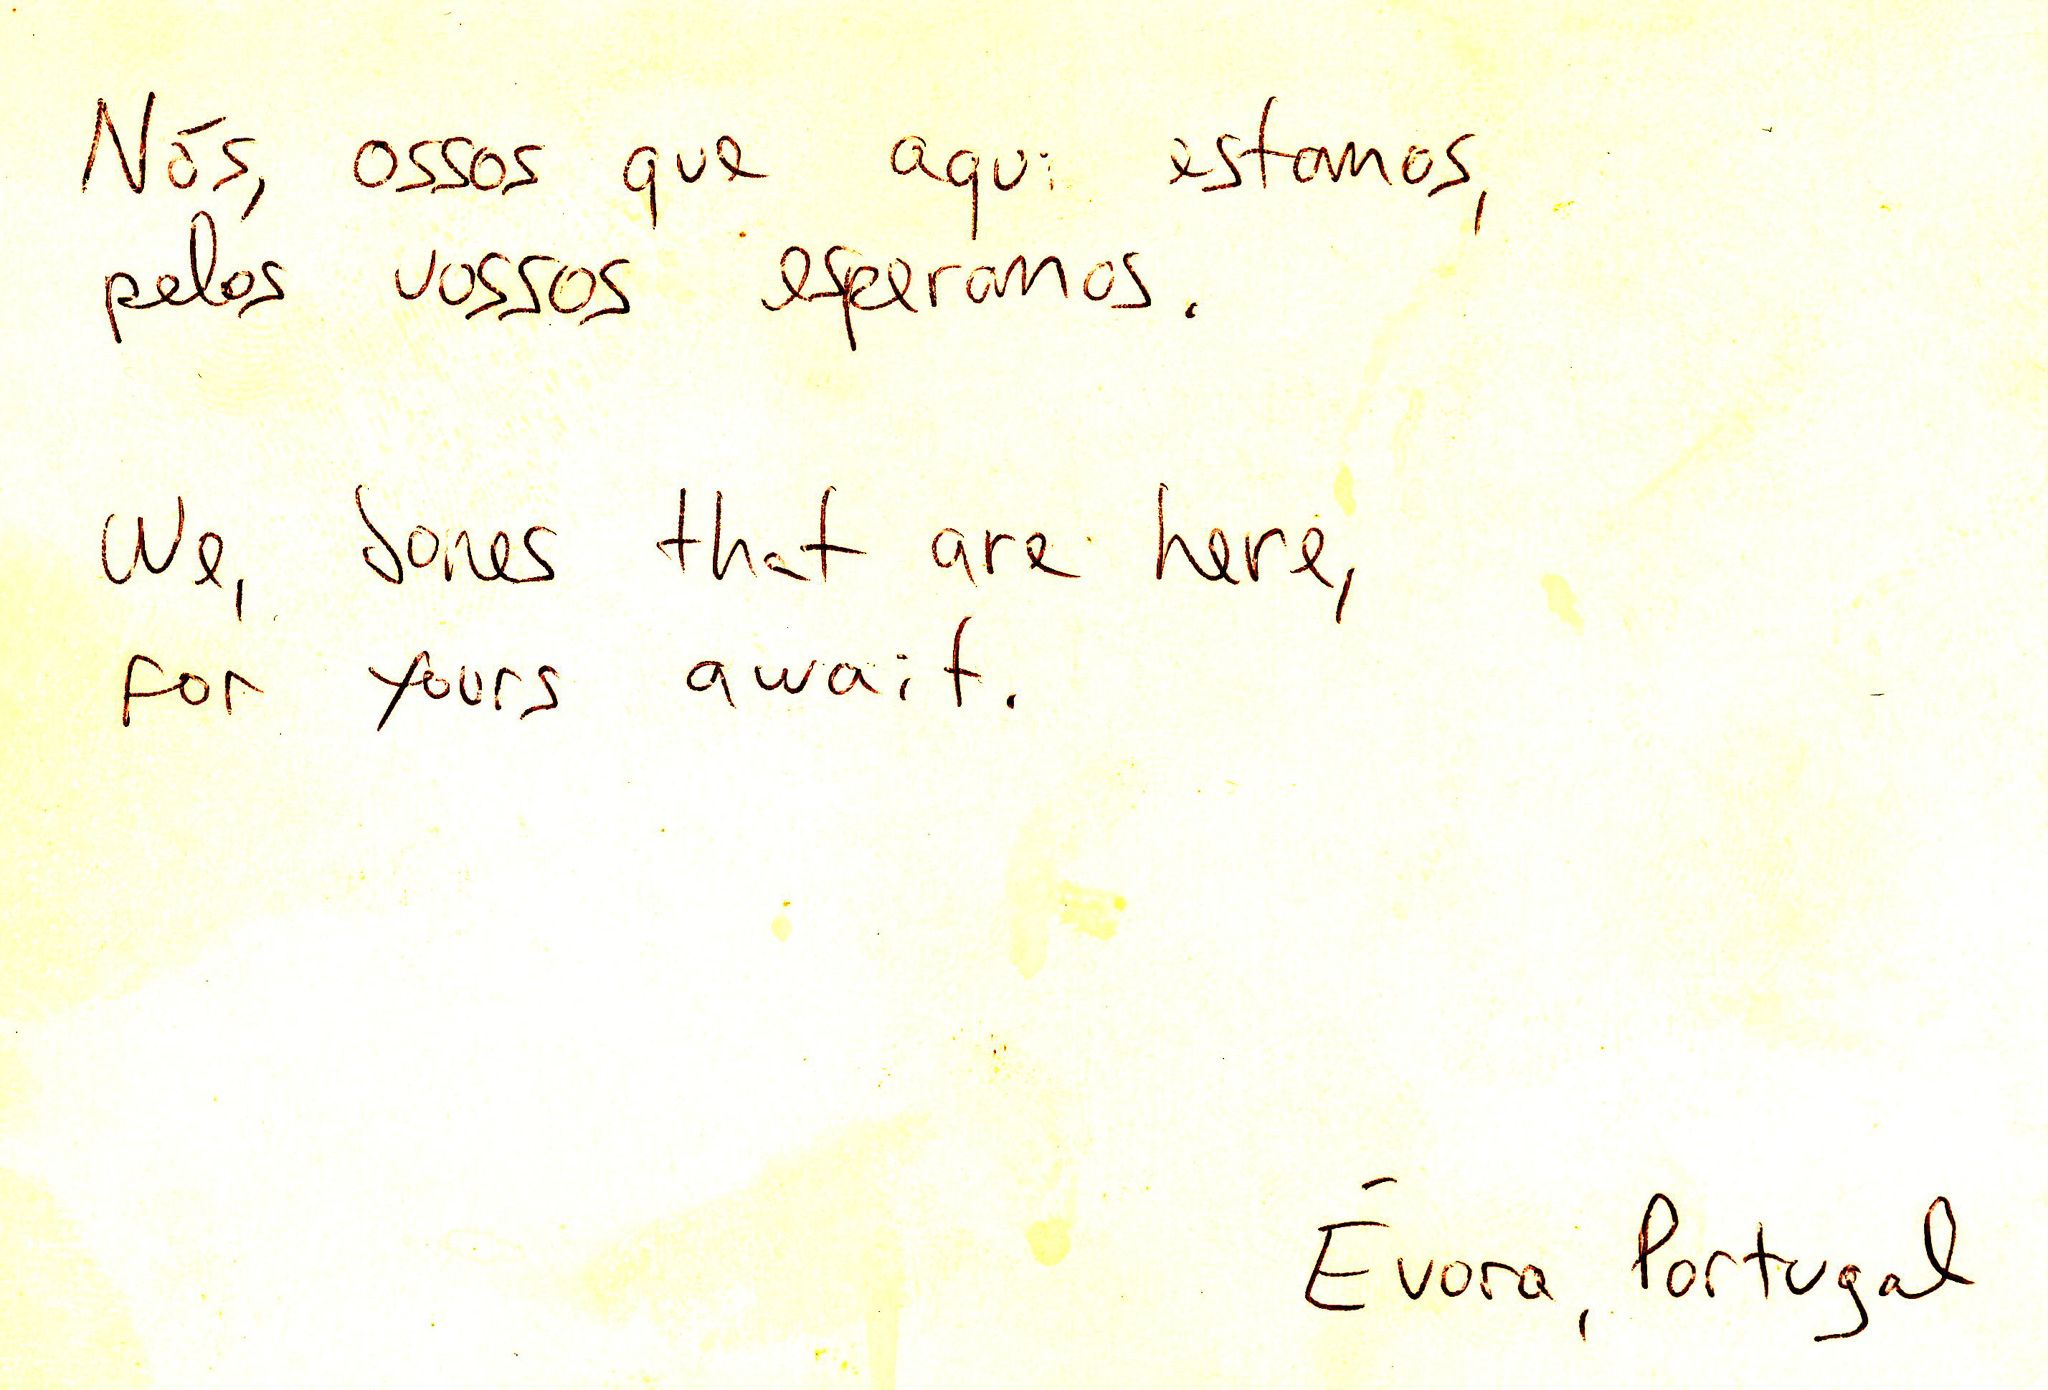 Nós, ossos que aqui estamos,
pelos vossos esperamos.
We, bones that are here,
for yours await.
Évora, Portugal